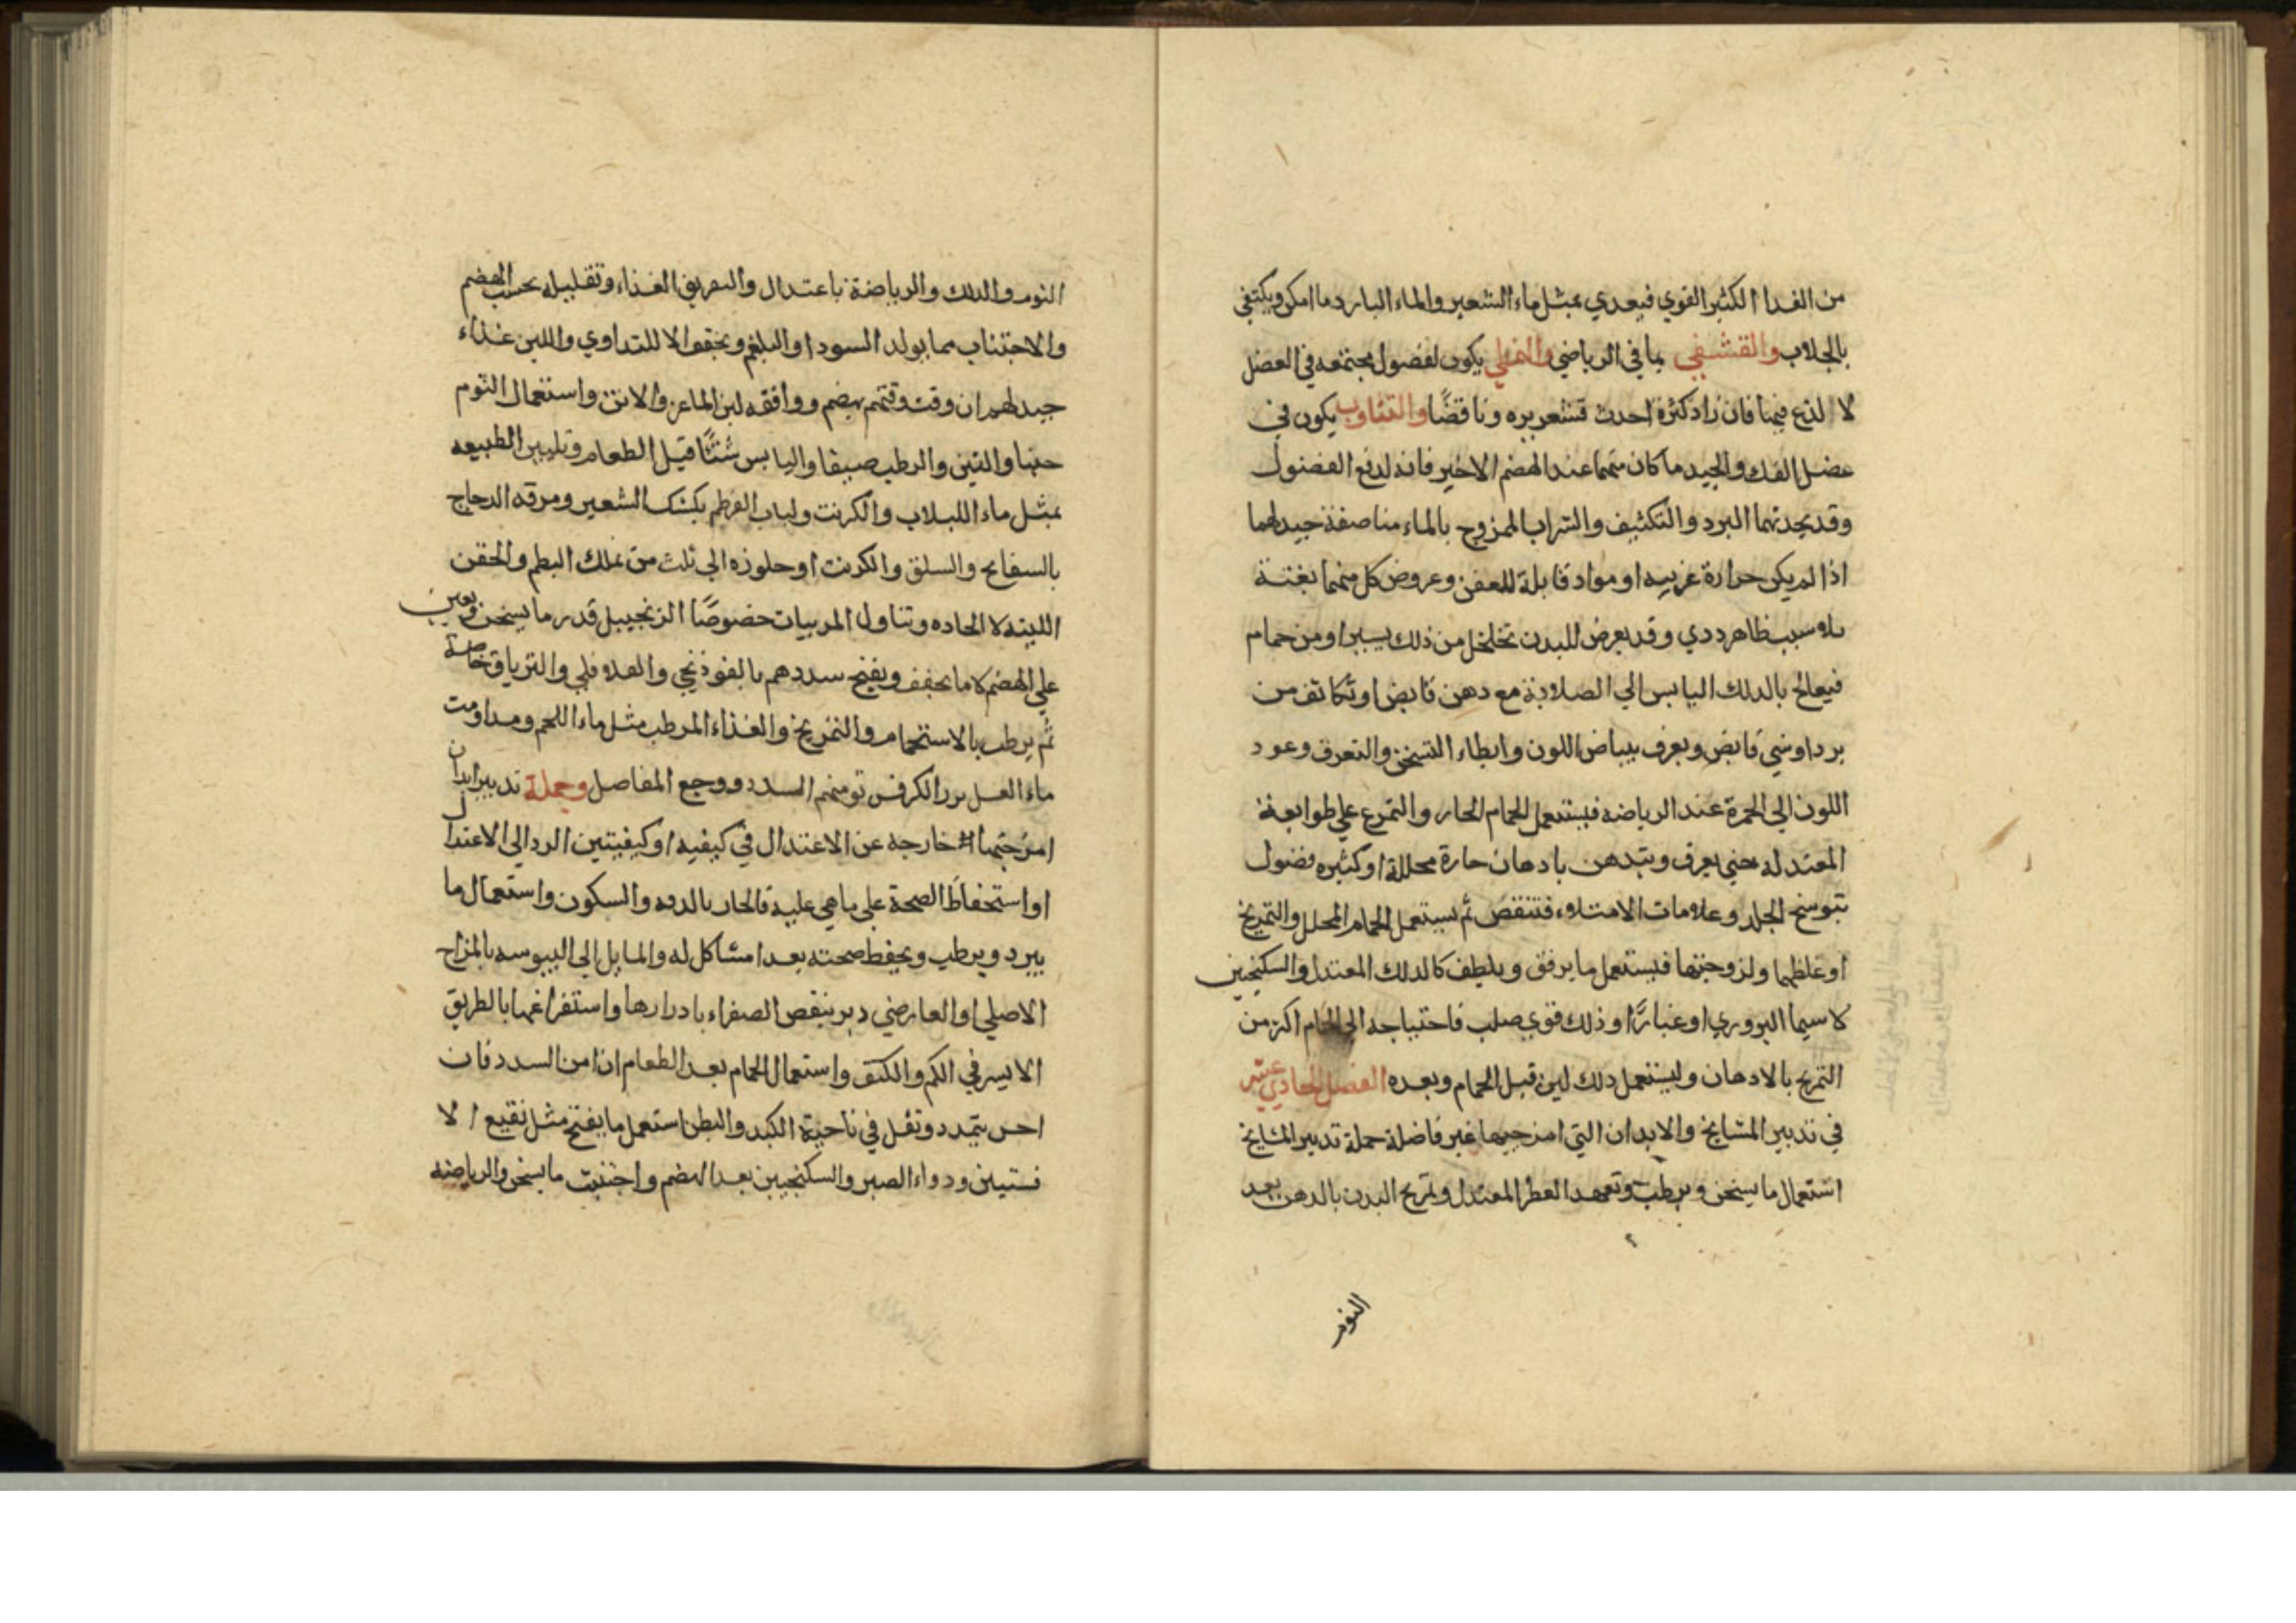 من الغدا الكثير القوي فيعدي بمثل ماء الشعير والماء البارد ما امكن ويكتفي
بالجلاب والقشفي بما في الرياضي والتمطي يكون لفضول مجتمعه في العضل
لا لذع فيها فان زاد كثرة احدث قشعريره ونافضًا والتثاوب يكون في
عضل الفك والجيد ما كان منهما عند الهضم الاخير فانه لدفع الفضول
وقد يحدثهما البرد والتكثيف والشراب الممزوج بالماء مناصفة جيد لهما
اذا لم يكن حرارة غريبه او مواد قابلة للعفن وعروض كل منهما بغتة
بلا سبب ظاهر ردي وقد يعرض للبدن تخلخل من ذلك يسير او من حمام
فيعالج بالدلك اليابس الي الصلابة مع دهن قابض او تكاثف من
برد او شي قابض ويعرف ببياض اللون وابطاء التسخن والتعرق وعود
اللون الي الحمرة عند الرياضه فيستعمل الحمام الحار والتمرع علي طوابعة
المعتدله حتي يعرق ويتدهن بادهان حارة محللة او كثيره فضول
بتوسخ الجلد وعلامات الامتلاء فتنقص ثم يستعمل الحمام المحلل والتمريخ
او غلظها ولزوجتها فيستعمل ما يرفق ويلطف كالدلك المعتدل والسكنجبين
لا سيما البزوري او غبارًا او ذلك قوي صلب فاحتياجه الي الحمام اكثر من
التمريخ بالادهان وليستعمل دلك لين قبل الحمام وبعده الفصل الحادي عشر
في تدبير المشايخ والابدان التي امزجتها غير فاضلة جملة تدبير المشايخ
استعمال ما يسخن ويرطب وتعهد العطر المعتدل وتمريخ البدن بالدهن بعد
النوم
النوم والدلك والرياضة باعتدال والتفريق الغذاء وتقليله بحسب الهضم
والاجتناب مما يولد السودا والبلغم ويجفف الا للتداوي واللبن غذاء
جيد لهم ان وقت وقتهم بهضم ووافقه لبن الماعز والاتن واستعمال الثوم
حينا والتين والرطب صيفا واليابس شتًّا قبل الطعام وتليين الطبيعه
بمثل ماء اللبلاب والكرنب ولباب القرطم بكشك الشعير ومرقه الدجاج
بالسفايج والسلق والكرنب او جلوزه الي ثلث من علك البطم والحقن
اللينه لا الحاده وتناول المربيات خصوصًا الزنجبيل قدر ما يسخن ويعين
علي الهضم لا ما يجفف ويفتح سددهم بالفوذنجي والفلافلي والترياق خاصة
ثم يرطب بالاستحمام والتمريخ والغذاء المرطب مثل ماء اللحم ومداومت
ماء العسل ببزر الكرفس تومنهم السدد ووجع المفاصل وجملة تدبير ابدان
امزجتها خارجه عن الاعتدال في كيفيه او كيفيتين الرد الي الاعتدال
او استحفاظ الصحة علي ما هي عليه فالحار بالدعه والسكون واستعمال ما
يبرد ويرطب ويحفظ صحته بعدا مشاكل له والمايل الي اليبوسه بالمزاج
الاصلي او العارضي دبر بنقص الصفراء بادرارها واستفراغها بالطريق
الايسر في الكم والكيف واستعمال الحمام بعد الطعام ان امن السدد فان
احس بتمدد وثقل في ناحية الكبد والبطن استعمل ما يفتح مثل نقيع الا
فسنتين ودواء الصبر والسكنجبين بعد الهضم واجتنب ما يسخن والرياضه